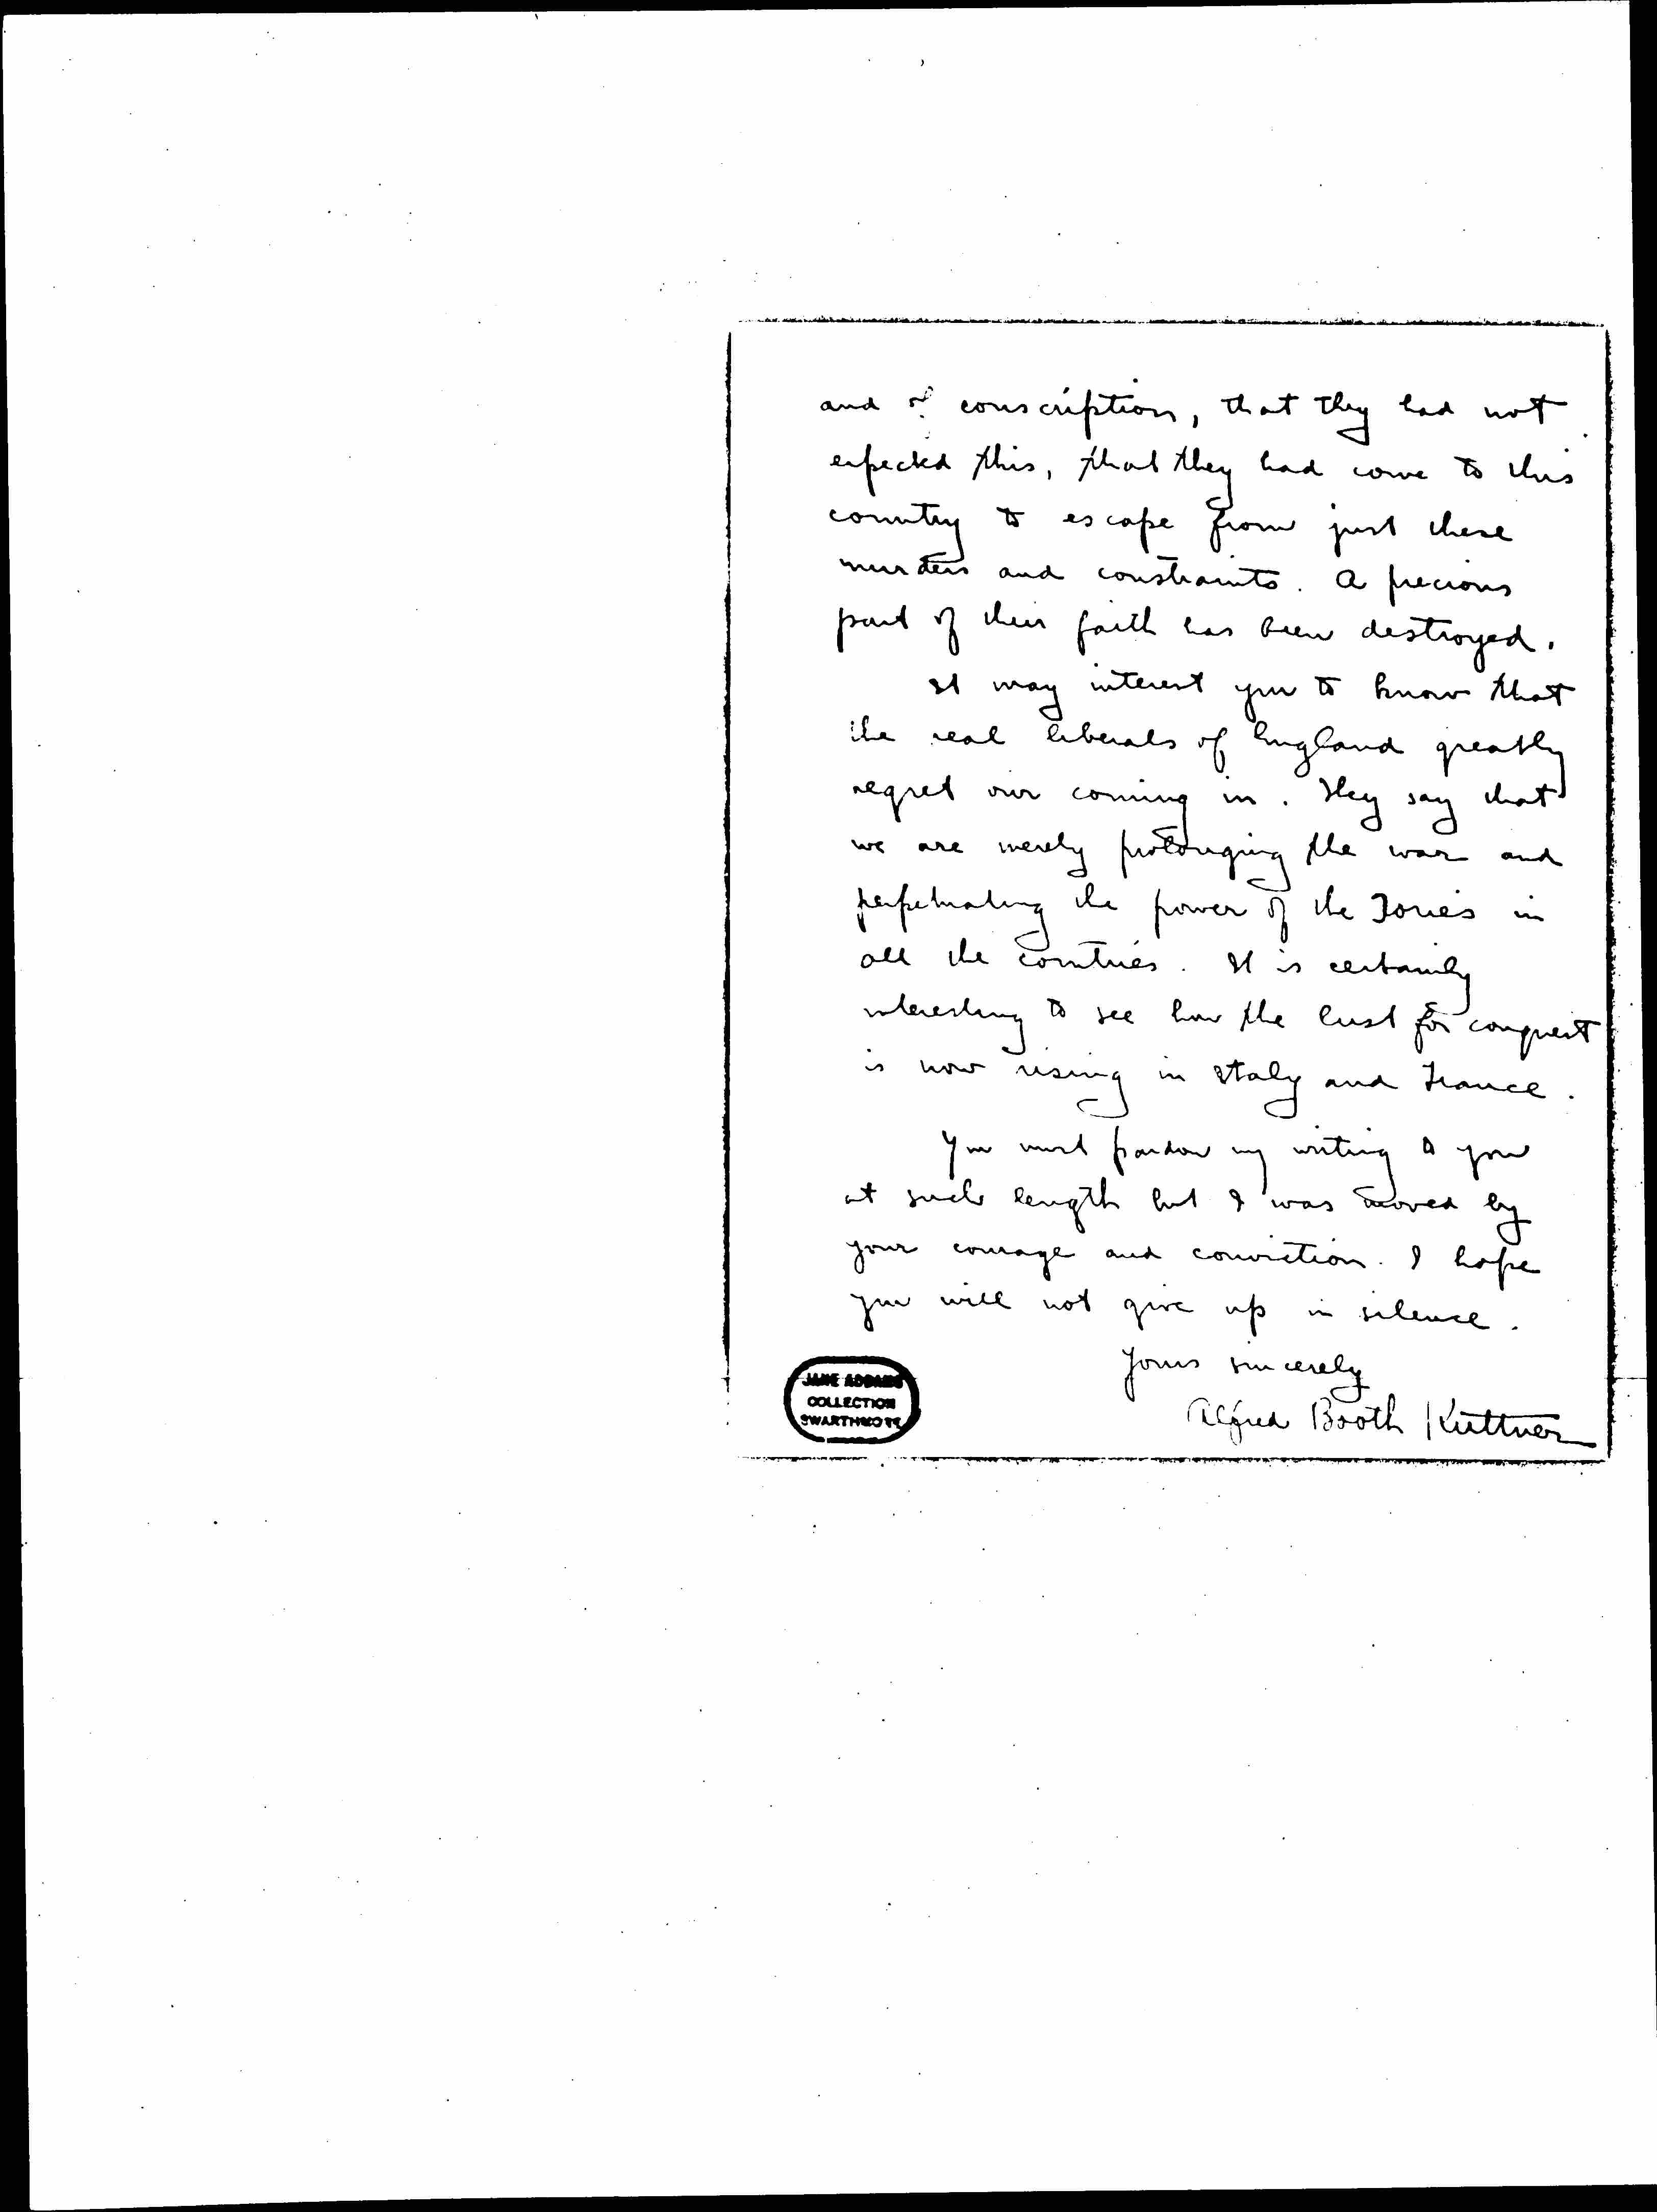 and of conscription, that they had not
expected this, that they had come to this
country to escape from just these
murders and constraints. A precious
part of their faith has been destroyed.
It may interest you to know that
the real liberals of England greatly
regret our coming in. They say that
we are merely prolonging the war and
perpetuating the power of the Tories in
all the countries. It is certainly
interesting to see how the lust for conquest
is now rising in Italy and France.
You must pardon my writing to you
at such length but I was moved by
your courage and conviction. I hope
you will not give up in silence.
Yours sincerely
Alfred Booth Kuttner
JANE ADDAMS
COLLECTION
SWARTHMORE